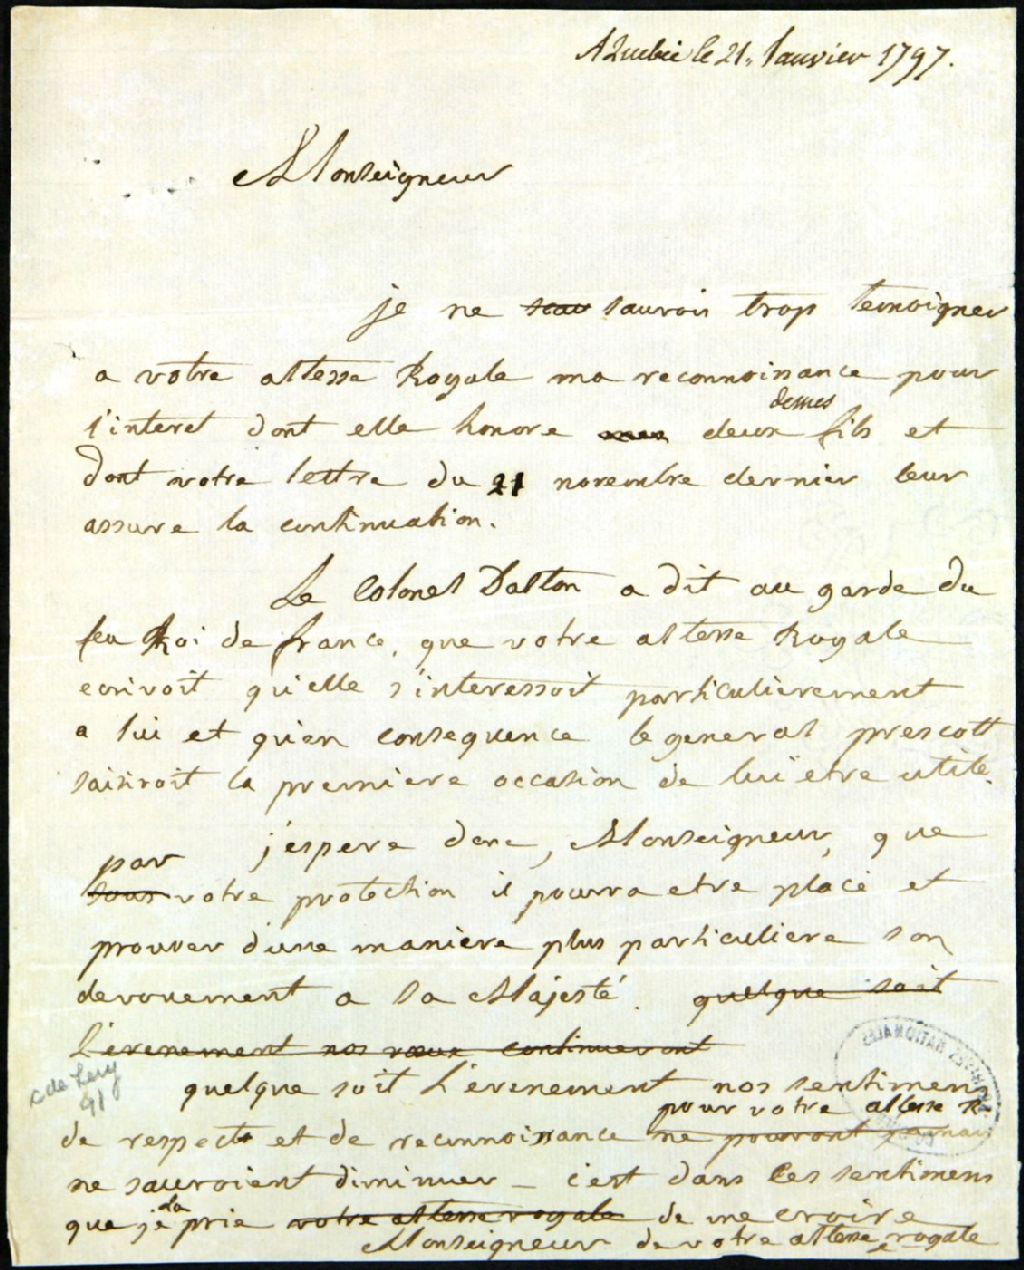 A Quebec le 21. Janvier 1797.
Monseigneur
je ne scau saurois trop temoigner
a votre altesse Royale ma reconnoissance pour
demes
l'interet dont elle honore mes deux fils et
dont votre lettre du 21 novembre dernier leur
assure la continuation.
Le Colonel Dalton a dit au garde du
feu Roi de france, que votre altesse Royale
ecrivoit qu'elle s'interessoit particulierement
a lui et qu'en consequence le general prescott
saisiroit la premiere occasion de lui etre utile.
j'espere donc, Monseigneur, que
par
sous votre protection il pourra etre placé et
prouver d'une maniere plus particuliere son
devouement a sa Majesté. quelque soit
l'evenement nos vœux continueront
quelque soit l'evenement nos sentimens
pour votre altesse R
de respect et de reconnoissance ne pouront jamais
ne sauroient diminuer _ c'est dans ces sentimens
la
que je prie votre altesse royale de me croire
Monseigneur de votre altesse royale
C de Lery
91
ARCHIVES NATIONALES